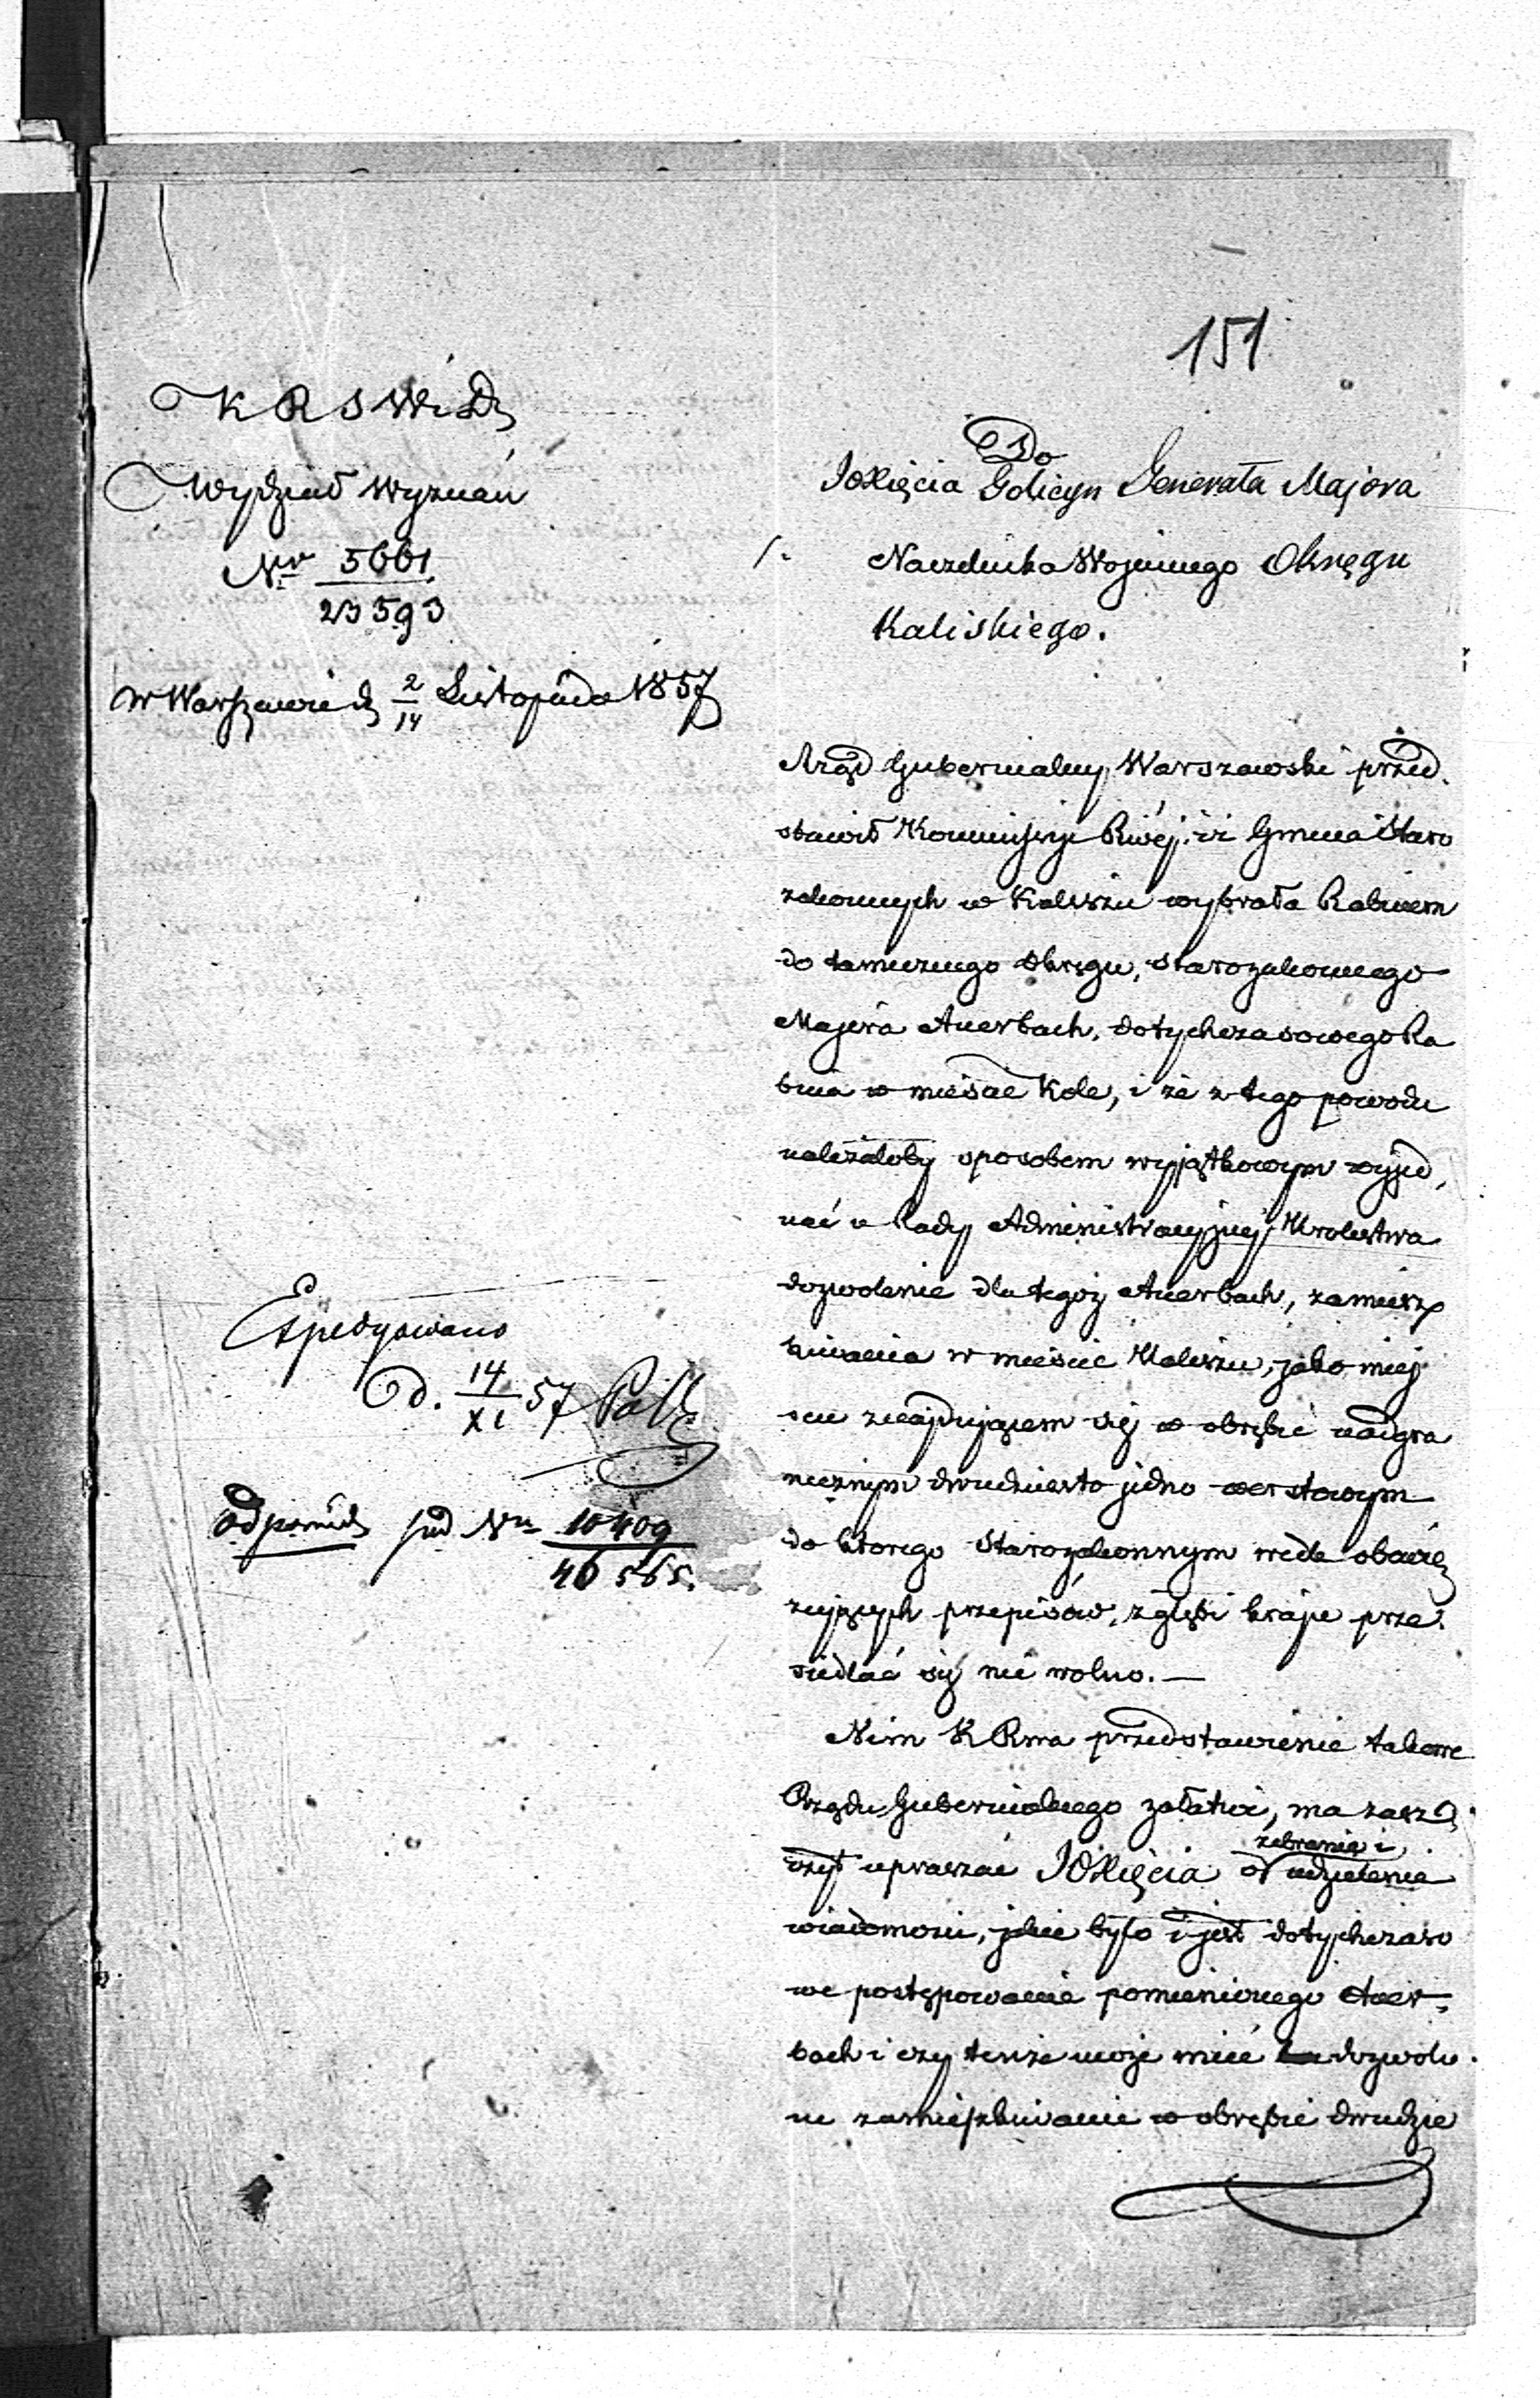 151
K R S W i D
Wydział Wyznań
Nro 5661
23593
w Warszawie d 2/14 Listopada 1857
Do
JOXięcia Golicyn Generała Majora
Naczelnika Wojennego Okręgu
Kaliskiego.
Rząd Gubernialny Warszawski przed
stawił Kommissyi Rwéj, iż Gmina Staro
zakonnych w Kaliszu wybrała Rabinem
do tamecznego Okręgu, Starozakonnego
Majera Auerbach, dotychczasowego Ra
bina w mieście Kole, i że z tego powodu
należałoby sposobem wyjątkowym wyjed
nać u Rady Administracyjnej Królestwa
dozwolenie dla tegoż Auerbach, zamiesz
kiwania w mieście Kaliszu, jako miej
scu znajdującem się w obrębie nadgra
nicznym dwudziesto jedno werstowym
do którego Starozakonnym wedle obowią
zujących przepisów, z głębi kraju prze
siedlać się nie wolno. —
Nim K Rwa przedstawienie takowe
Rządu Gubernialnego załatwi, ma zasz
czyt upraszać JOXięcia o zebranie i udzielenie
wiadomości, jakie było i jest dotychczaso
we postępowanie pomienionego Auer
bach i czy tenże może mieć dozwolo
ne zamieszkiwanie w obrębie dwudzie
Expedyowano
d. 14/XI 57
odpowiedź pod Nr 10409
46565.